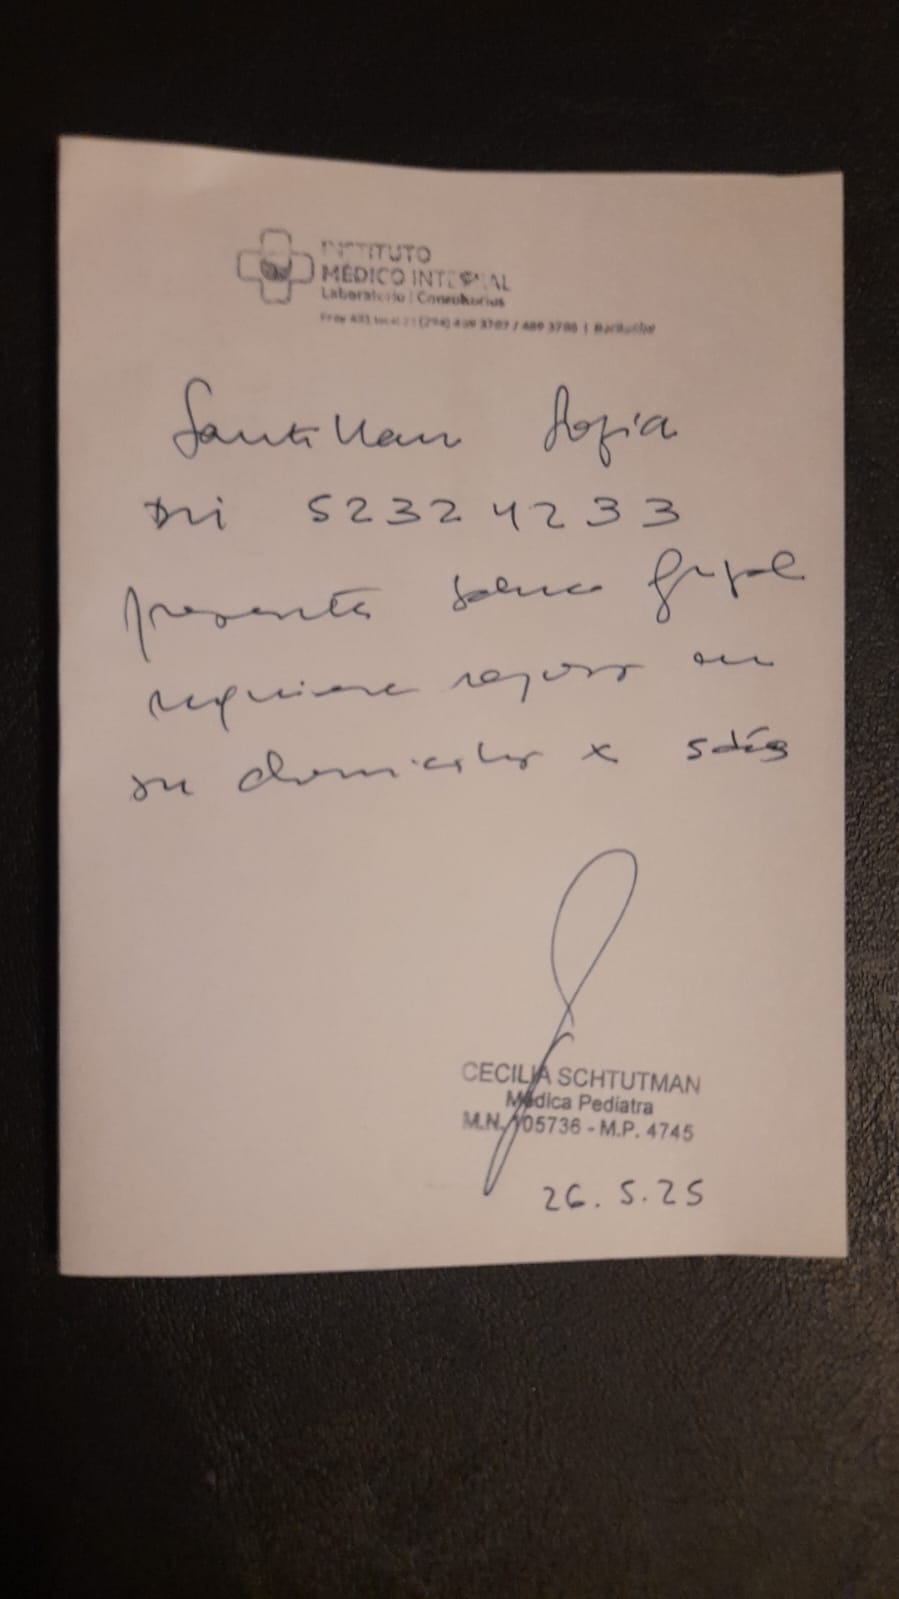 INSTITUTO
MÉDICO INTEGRAL
Laboratorio | Consultorios
Frey 431 local 2 | (294) 489 3787 / 489 3788 | Bariloche
Santillan Sofia
DNI 52324233
presenta gripal
requiere reposo en
su domicilio x 5 días
CECILIA SCHTUTMAN
Médica Pediatra
M.N. 105736 - M.P. 4745
26.5.25